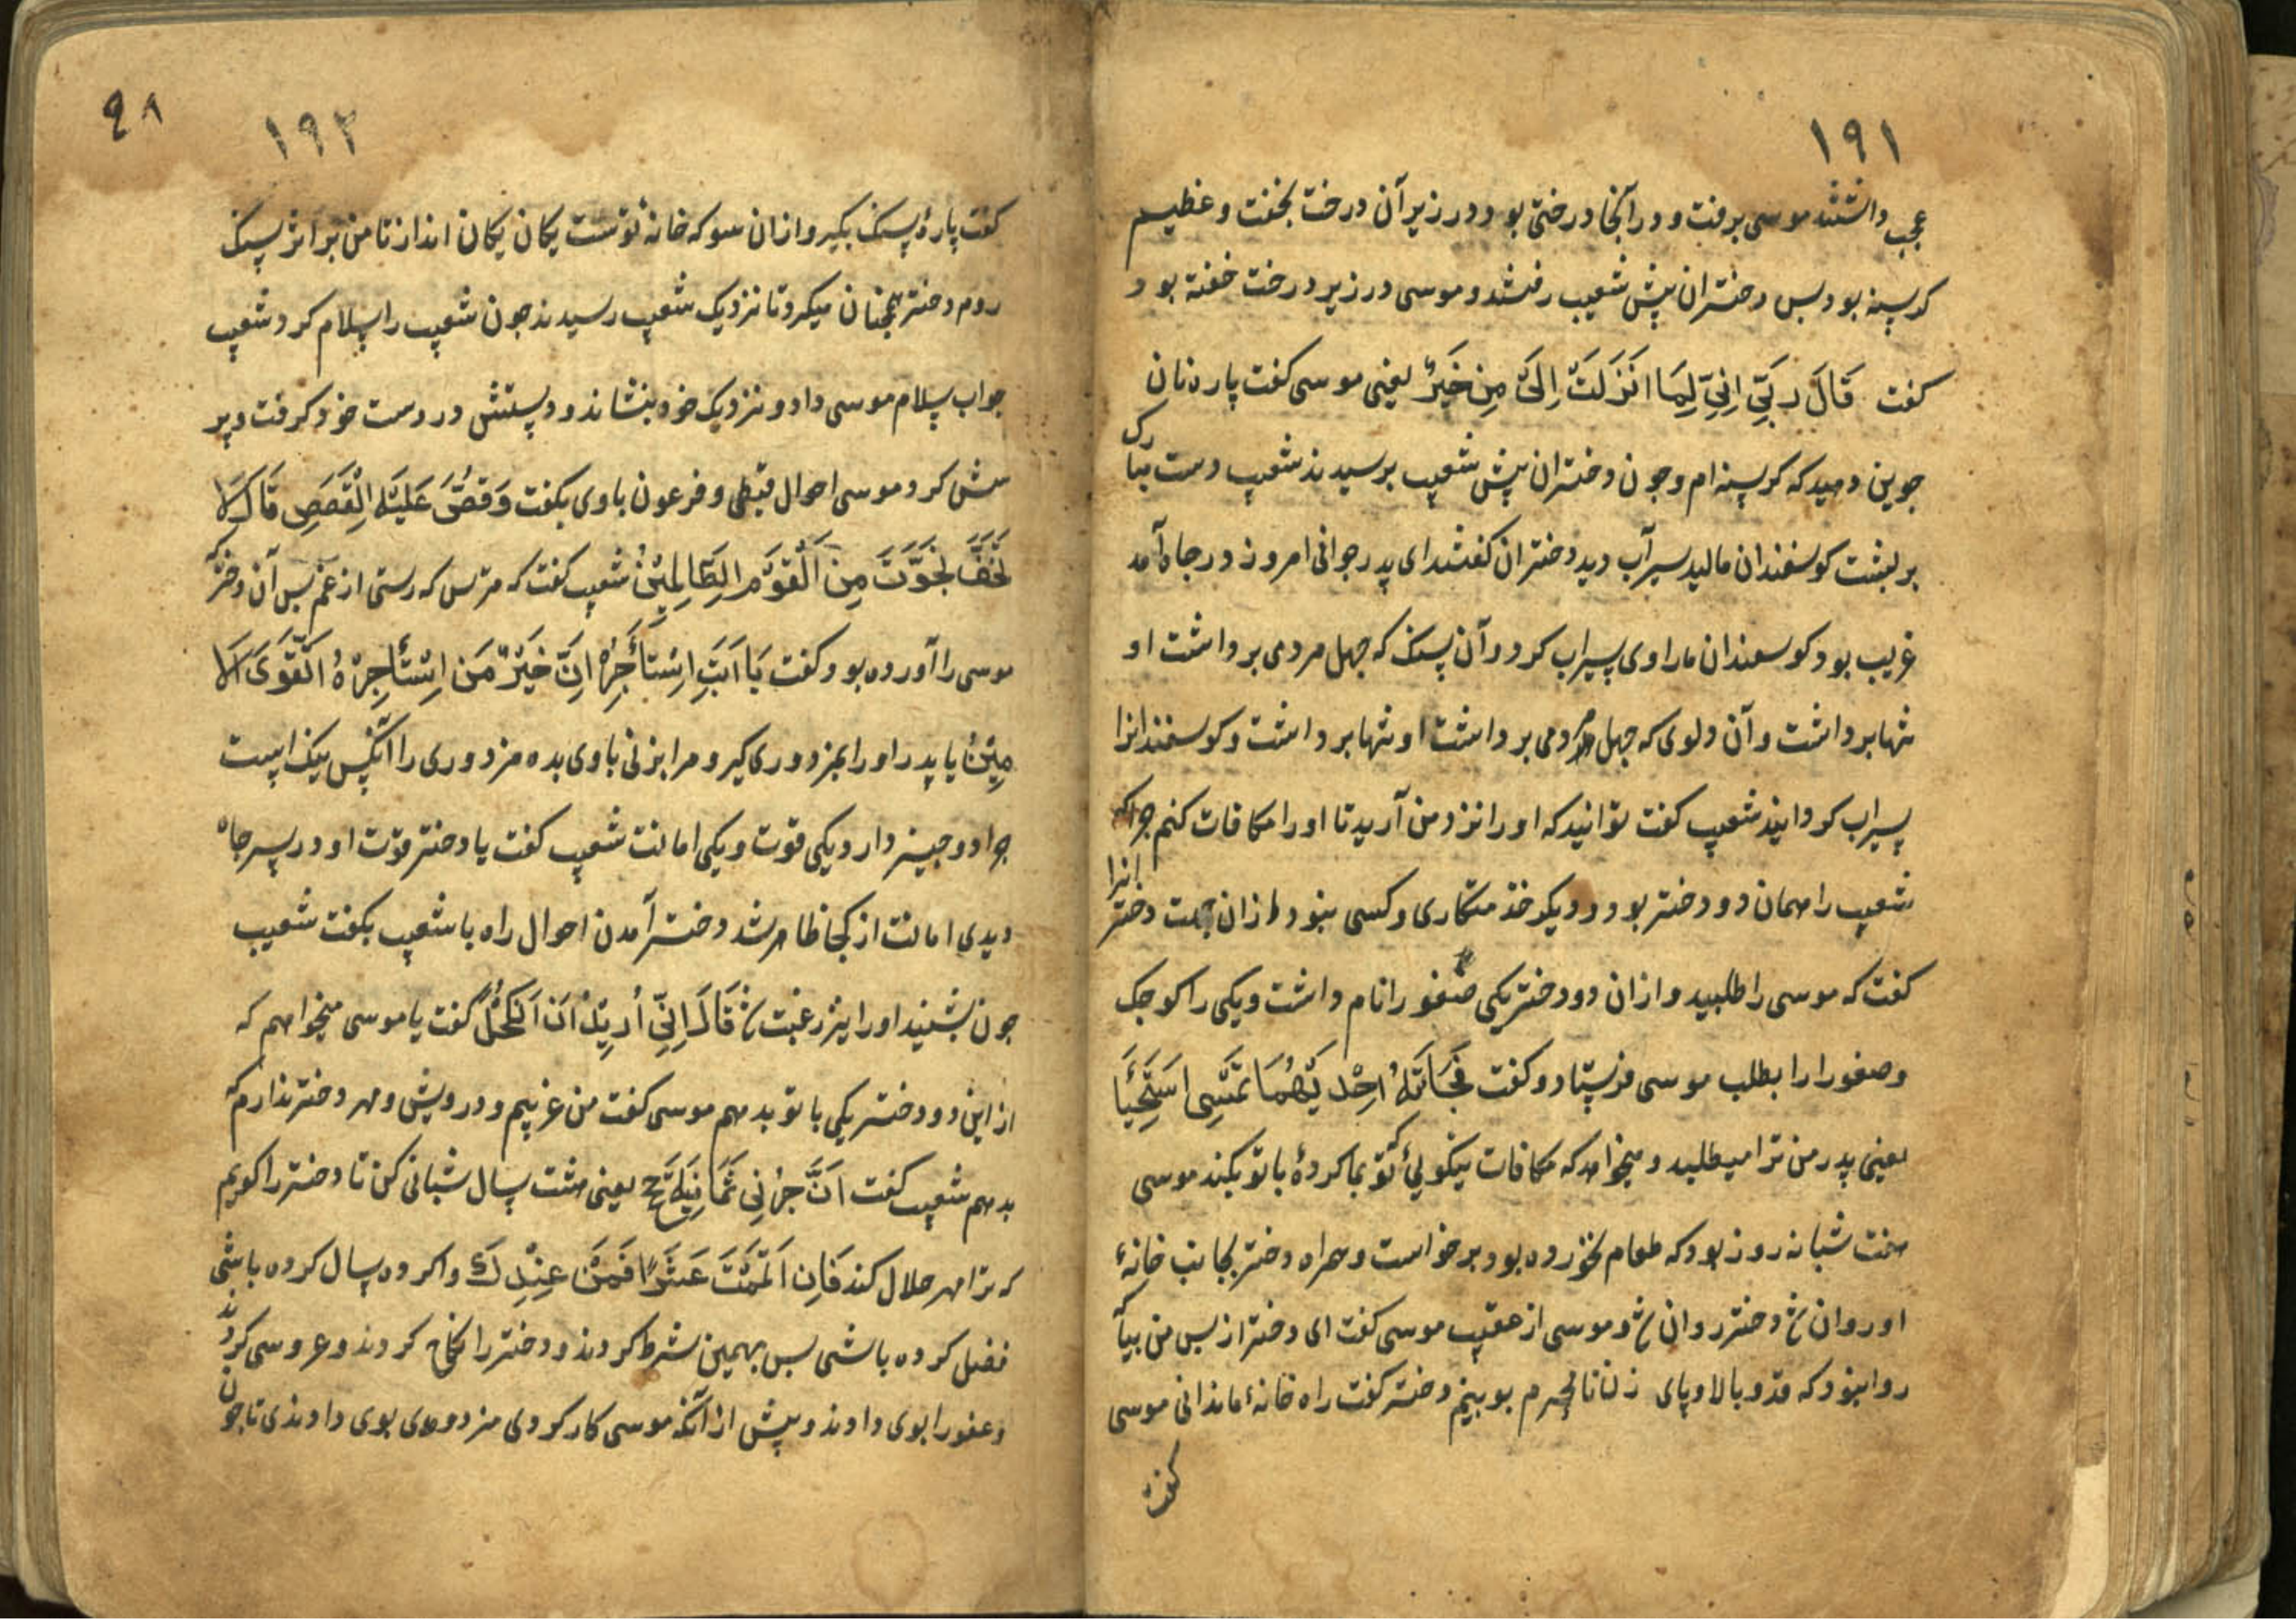 ۱۹۱
عجب داشتند موسی برفت و در آنجا درختی بود در زیر آن درخت بخفت و عظیم
کرسنه بود بس دختران پیش شعیب رفتند و موسی در زیر درخت خفته بود و
کفت قَالَ رَبِّی اِنِّی لِمَا اَنْزَلَتَ اِلَیَّ مِن خَیْرٍ یعنی موسی کفت پاره نان
جوین دمید که کرسنه ام و جون دختران پیش شعیب برسیدند شعیب دست مبارک
بر بشت کوسفندان مالید سیرآب دید دختران کفتند ای پدر جوانی امروز در جاه آمد
غریب بود کوسفندان مارا وی سیراب کرد و آن سنک که جهل مردمی برداشت او
تنها برداشت و آن دلوی که جهل مردمی برداشت او تنها برداشت و کوسفندانرا
سیراب کردانید شعیب کفت توانید که او را نزد من آرید تا او را مکافات کنم جراکه
شعیب را مهمان دو دختر بود و دیکر خذمتکاری و کسی نبود از ان جهت دخترانرا
کفت که موسی را طلبید و از ان دو دختر یکی صفورا نام داشت و یکی را کوجک
و صفورا را بطلب موسی فرستاد و کفت فَجَاَتْهُ اِحْدَیهُمَا تَمْشِی اسْتِحْیَا
یعنی پدر من ترا میطلبد و میخواهد که مکافات نیکویئ که تو بما کردۀ با تو بکند موسی
هفت شبانه روز بود که طعام نخورده بود برخواست و همراه دختر بجانب خانۀ
او روان شد دختر روان شد و موسی از عقب موسی کفت ای دختر از بس من بیا که
روا نبود که قد و بالا و پای زنان نامحرم بوبینم دختر کفت راه خانۀ ما ندانی موسی
کفت
۹۸
۱۹۲
کفت پارۀ سنک بکیر و ازان سو که خانۀ توست یکان یکان انداز تا من بر اثر سنک
روم دختر همجنان میکرد تا نزدیک شعیب رسیدند جون شعیب را سلام کرد شعیب
جواب سلام موسی داد و نزدیک خود بنشاند و دستش در دست خود کرفت و پر
سش کرد موسی احوال قبطی و فرعون باوی بکفت وَقَصَّ عَلَیْهِ الْقَصَصِ قَالَ لَا
تَخَفْ نَجَوْتَ مِنَ الْقَوْمِ الظَالِمِیْنَ شعیب کفت که مترس که رستی از غم بس آن دختر که
موسی را آورده بود کفت یَا اَبَتِ اسْتَأجِرْهُ اِنَّ خَیْرَ مَنِ اسْتَأجِرْهُ الْقَوِیَّ الْاَ
مِیْنُ یا پدر او را بمزدوری کیر و مرا بزنی باوی بده مزدوری را آنکس نیک است
جرا دو جیز دارد یکی قوت و یکی امانت شعیب کفت یا دختر قوت او در سر جاه
دیدی امانت از کجا ظاهر شد دختر آمدن احوال راه با شعیب بکفت شعیب
جون بشنید او را نیز رغبت شد قَالَ اِنِّی اُرِیْدُ اَنْ اَنْکِحَکَ کفت یا موسی میخواهم که
از این دو دختر یکی با تو بدهم موسی کفت من غریبم و درویش و مهر دختر ندارم که
بدهم شعیب کفت اَنْ تَأجُرَنِی ثَمَانِیَةَ حِجَجٍ یعنی هشت سال شبانی کن تا دختر را کویم
که ترا مهر حلال کند فَاِن اَتْمَمْتَ عَشْرًا فَمِنْ عِنْدِکَ و اکر ده سال کرده باشی
فضل کرده باشی بس بهمین شرط کردند و دختر را نکاح کردند و عروسی کردند
و صفورا بوی دادند و پیش از آنکه موسی کار کردی مزدوری بوی دادندی تا جون